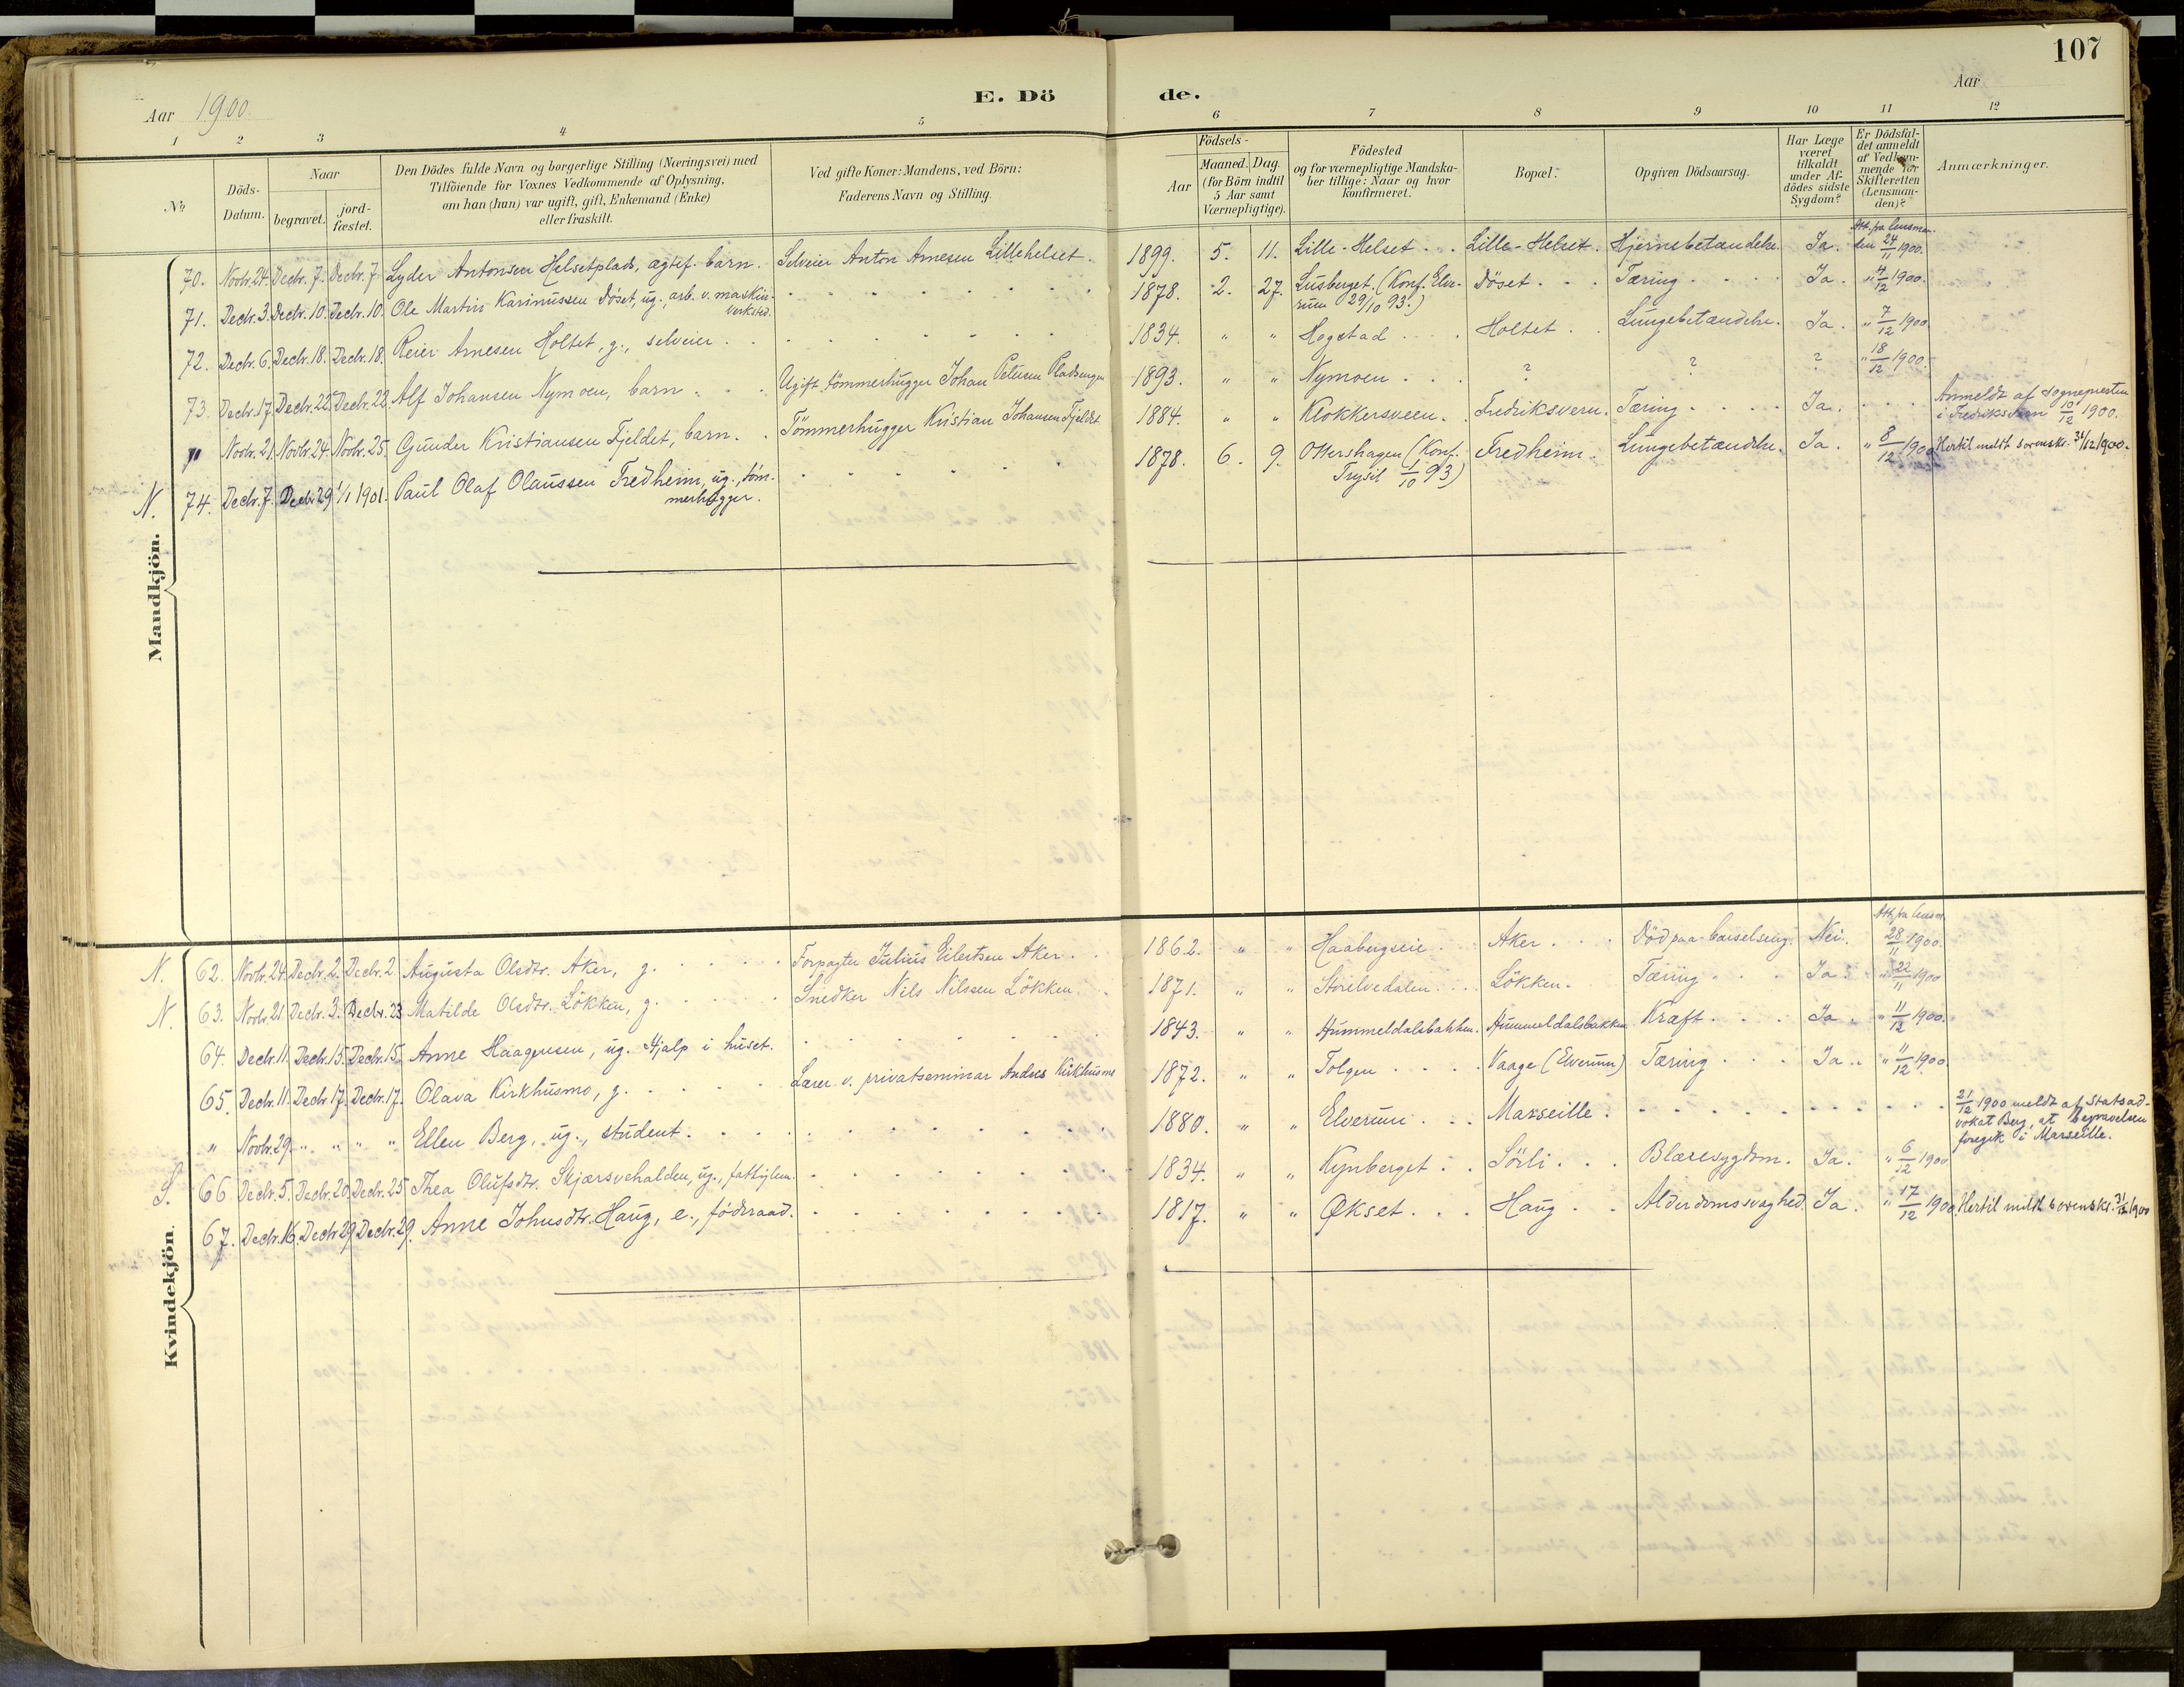 107
Aar 1900.
E. Dö de.
Aar
1 2 3 4 5 6 7 8 9 10 11 12
No
Döds-Datum.
Naar begravet. jordfæstet.
Den Dödes fulde Navn og borgerlige Stilling (Næringsvei) med
Tilföiende for Voxnes Vedkommende af Oplysning,
om han (hun) var ugift, gift, Enkemand (Enke)
eller fraskilt.
Ved gifte Koner: Mandens, ved Börn:
Faderens Navn og Stilling.
Födsels-
Aar Maaned. Dag.
(for Börn indtil
5 Aar samt
Værnepligtige).
Födested
og for værnepligtige Mandska-
ber tillige: Naar og hvor
konfirmeret.
Bopæl.
Opgiven Dödsaarsag.
Har Læge
været
tilkaldt
under Af-
dödes sidste
Sygdom?
Er Dödsfal-
det anmeldt
af Vedkom-
mende for
Skifteretten
(Lensman-
den)?
Anmærkninger.
Mandkjön.
70. Novbr. 24. Decbr. 7. Decbr. 7 Lyder Antonsen Helsetplads, ægtef. barn. Selveier Anton Arnesen Lillehelset. 1899. 5. 11. Lille-Helset. Lille-Helset. Hjernebetændelse. Ja. Att. fra lensman-
den 24/11 1900.
71. Decbr. 3. Decbr. 10. Decbr. 10. Ole Martin Karinussen Döset, ug., arb. v. maskin-
verksted. 1878. 2. 27. Lusberget. (Konf. Elve-
rum 29/10 93.) Döset. Tæring Ja. " 4/12 1900.
72. Decbr. 6. Decbr. 18. Decbr. 18. Reier Arnesen Holtet, g., selveier 1834. " " Hogstad Holtet. Lungebetændelse. Ja. " 7/12 1900.
73. Decbr. 17. Decbr. 22. Decbr. 22. Alf Johansen Nymoen, barn. Ugift tömmerhugger Johan Petersen Pladsengen 1893. " " Nymoen ? ? ? " 18/12 1900.
" Novbr. 21. Novbr. 24. Novbr. 25. Gunder Kristiansen Fjeldet, barn. Tömmerhugger Kristian Johansen Fjeldet 1884. " " Klokkersveen. Fredriksvern. Tæring Ja. Anmeldt af sognepresten
i Fredriksvern 10/12 1900.
N. 74. Decbr. 7. Decbr. 29 1/1 1901. Paul Olaf Olaussen Fredheim, ug., töm-
merhugger. 1878. 6. 9. Ottershagen (Konf.
Trysil 1/10 93) Fredheim. Lungebetændelse. Ja. " 8/12 1900. Hertil meldt sorensk. 31/12 1900.
Kvindekjön.
N. 62. Novbr. 24. Decbr. 2. Decbr. 2. Augusta Olsdtr. Aker, g. Forpagter Julius Eilertsen Aker. 1862. " " Haabergseie Aker Död paa barselseng. Nei. Att. fra lensm.
28/11 1900.
N. 63. Novbr. 21. Decbr. 3. Decbr. 23 Matilde Olsdtr. Lökken, g. Snedker Nils Nilssen Lökken. 1871. " " Storelvedalen Lökken. Tæring Ja. " 22/11 1900
64. Decbr. 11. Decbr. 15. Decbr. 15. Anne Haagensen, ug. Hjælp i huset. 1843. " " Hummeldalsbakken. Hummeldalsbakken Kræft. Ja. " 11/12 1900.
65. Decbr. 11. Decbr. 17. Decbr. 17. Olava Kirkhusmo, g. Lærer v. privatseminar Anders Kirkhusmo 1872. " " Tolgen Vaage (Elverum) Tæring Ja. " 11/12 1900
" Novbr. 29. " " Ellen Berg, ug., student. 1880. " " Elverum Marseille. 21/12 1900 meldt af statsad-
vokat Berg, at begravelsen
foregik i Marseille.
S. 66 Decbr. 5. Decbr. 20. Decbr. 25 Thea Olufsdtr. Skjærsvehalden, ug., fattiglem. 1834. " " Kynberget Sörli Blæresygdom. Ja. " 6/12 1900
67. Decbr. 16. Decbr. 29. Decbr. 29. Anne Johnsdtr. Haug, e., föderaad. 1817. " " Økset Haug Alderdomssvaghed. Ja. " 17/12 1900. Hertil meldt sorenskr. 31/12 1900